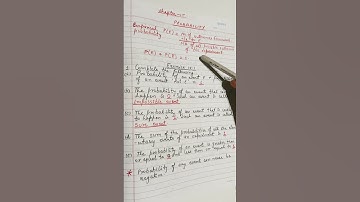 Chapter-15
PROBABILITY
Empirical P(E) = No. of outcomes favourable
probability to E
No. of all possible outcomes
of the experiment
P(E) + P(Ē) = 1
Exercise 15.1
1. Complete the following
(i) Probability of an event E +
of an event not E = 1
(ii) The probability of an event that
happen is 0. Such an event
Impossible event
The probability of an event that is
to happen is 1. Such an event is
Sure event
The sum of the probabilities of all the ele-
mentary events of an experiment is
The probability of an event is greater than
or equal to 0 and less than or equal to 1
* Probability of any event can never be
negative